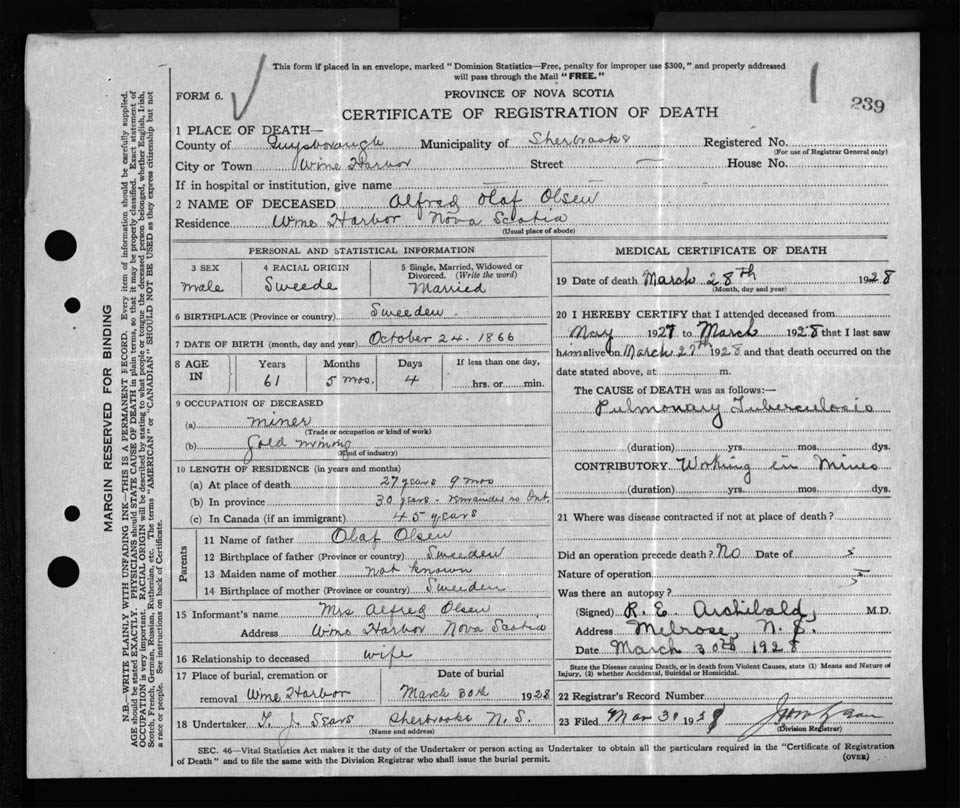 This form if placed in an envelope, marked "Dominion Statistics—Free, penalty for improper use $300," and properly addressed
will pass through the Mail "FREE."
FORM 6.
PROVINCE OF NOVA SCOTIA
239
CERTIFICATE OF REGISTRATION OF DEATH
1 PLACE OF DEATH—
County of Guysborough Municipality of Sherbrooke Registered No.
(For use of Registrar General only)
City or Town Wine Harbor Street — House No.
If in hospital or institution, give name — —
2 NAME OF DECEASED Alfred Olaf Olsen
Residence Wine Harbor Nova Scotia
(Usual place of abode)
PERSONAL AND STATISTICAL INFORMATION
3 SEX 4 RACIAL ORIGIN 5 Single, Married, Widowed or
Divorced. (Write the word)
male Sweede Married
6 BIRTHPLACE (Province or country) Sweeden.
7 DATE OF BIRTH (month, day and year) October 24. 1866
8 AGE IN Years Months Days If less than one day,
61 5 mos. 4 hrs. or min.
9 OCCUPATION OF DECEASED
(a) miner
(Trade or occupation or kind of work)
(b) Gold mining
(Kind of industry)
10 LENGTH OF RESIDENCE (in years and months)
(a) At place of death 27 years 9 mos
(b) In province 30 years. remainder in Ont.
(c) In Canada (if an immigrant) 45 years
Parents
11 Name of father Olaf Olsen
12 Birthplace of father (Province or country) Sweeden
13 Maiden name of mother not known
14 Birthplace of mother (Province or country) Sweeden
15 Informant's name Mrs Alfred Olsen
Address Wine Harbor Nova Scotia
16 Relationship to deceased wife
17 Place of burial, cremation or Date of burial
removal Wine Harbor March 30th 1928
18 Undertaker T. J. Sears Sherbrooke N.S.
(Name and address)
MEDICAL CERTIFICATE OF DEATH
19 Date of death March 28th 1928
(Month, day and year)
20 I HEREBY CERTIFY that I attended deceased from
May 1927 to March 1928 that I last saw
him alive on March 27th 1928 and that death occurred on the
date stated above, at m.
The CAUSE of DEATH was as follows:—
Pulmonary Tuberculosis
(duration) yrs. mos. dys.
CONTRIBUTORY Working in Mines
(duration) yrs. mos. dys.
21 Where was disease contracted if not at place of death?
Did an operation precede death? No Date of
Nature of operation
Was there an autopsy?
(Signed) R. E. Archibald, M.D.
Address Melrose, N.S.
Date March 30th 1928
State the Disease causing Death, or in death from Violent Causes, state (1) Means and Nature of
Injury, (2) whether Accidental, Suicidal or Homicidal.
22 Registrar's Record Number
23 Filed Mar 30 1928
(Division Registrar)
SEC. 46—Vital Statistics Act makes it the duty of the Undertaker or person acting as Undertaker to obtain all the particulars required in the "Certificate of Registration
of Death" and to file the same with the Division Registrar who shall issue the burial permit.
(OVER)
MARGIN RESERVED FOR BINDING
N.B.—WRITE PLAINLY WITH UNFADING INK—THIS IS A PERMANENT RECORD. Every item of information should be carefully supplied.
AGE should be stated EXACTLY. PHYSICIANS should STATE CAUSE OF DEATH in plain terms, so that it may be properly classified. Exact statement of
OCCUPATION is very important. RACIAL ORIGIN will be described by stating to what people or tongue the deceased person belonged, whether English, Irish,
Scotch, French, German, Russian, Ruthenian, etc. The terms "AMERICAN" or "CANADIAN" SHOULD NOT BE USED as they express citizenship but not
a race or people. See instructions on back of Certificate.